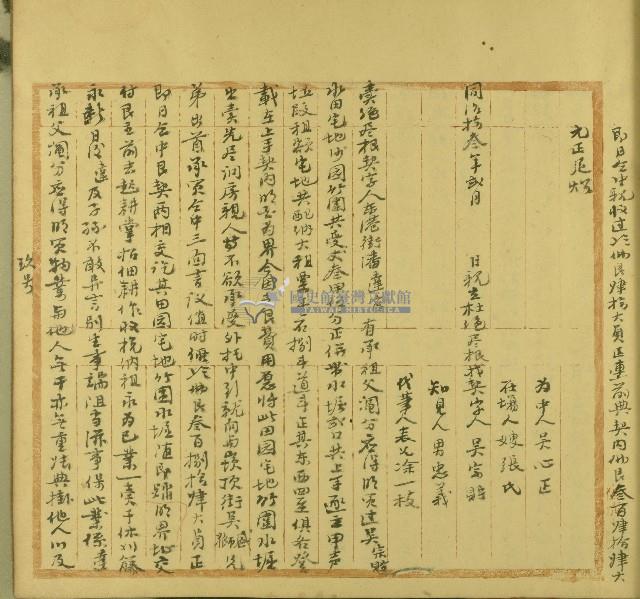 即日仝中親收過……佛艮肆拾大員正連前典契內佛艮叁百肆拾肆大
元正足炤
為中人吳心正
在場人嫂張氏
同治拾叁年弍月 日親立杜絕尽根找契字人吳宗賜
知見人男忠義
代筆人表兄涂一枝
賣絕尽根契字人東港街潘達 有承祖父鬮分應得明買過吳宗賜
水田宅地竹圍共受丈叁甲 分正併帶水堀弍口共上手 立甲声
坵段租額宅地共配納大租粟 石捌斗道斗正其東西四至俱各登
載在上手契內明白為界今因乏艮費用愿將此田園宅地竹圍水堀
出賣先尽問房親人等不欲承受外托中引就向与崁頂街吳 兄
弟出首承買仝中三面言議值時價 佛艮叁百捌拾肆大員正
即日仝中艮契兩相交訖其田園宅地竹圍水堀隨即踏明界址交
付艮主前去起耕掌招佃耕作收稅納租永為己業一賣千休 藤
永斷日後達及子孫不敢異言別生事端阻当滋事保此業係達
承祖父鬮分應得明買物業与他人無干亦無重張典掛他人以及
玖号
國史館臺灣文獻館
TAIWAN HISTORICA